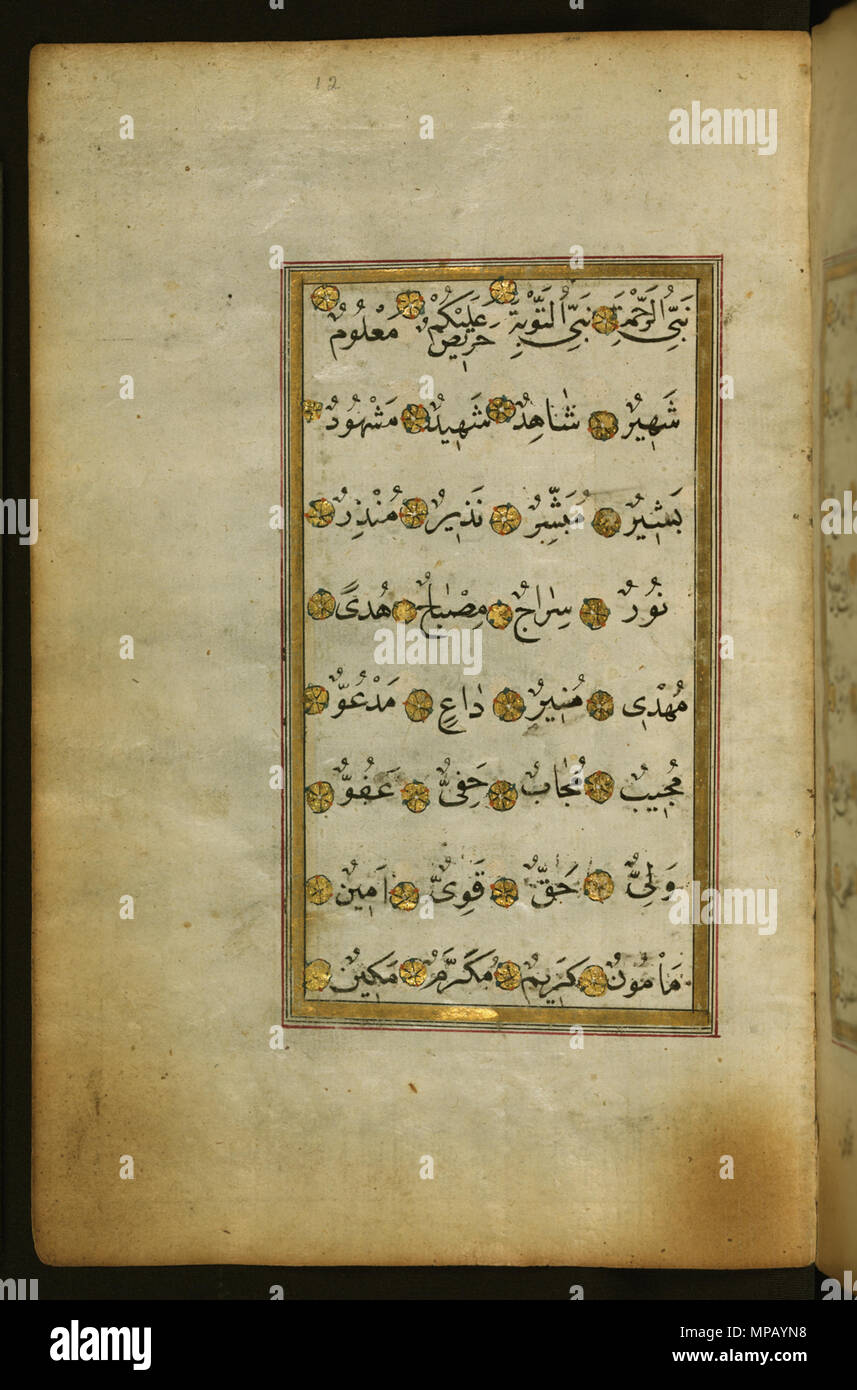 12
نَبِيُّ الرَّحْمَةِ نَبِيُّ التَّوْبَةِ حَرِيصٌ عَلَيْكُمْ مَعْلُومٌ
شَهِيرٌ شَاهِدٌ شَهِيدٌ مَشْهُودٌ
بَشِيرٌ مُبَشِّرٌ نَذِيرٌ مُنْذِرٌ
نُورٌ سِرَاجٌ مِصْبَاحٌ هُدًى
مُهْدِي مُنِيرٌ دَاعٍ مَدْعُوٌّ
مُجِيبٌ مُجَابٌ حَفِيٌّ عَفُوٌّ
وَلِيٌّ حَقٌّ قَوِيٌّ اَمِينٌ
مَاْمُونٌ كَرِيمٌ مُكَرَّمٌ مَكِينٌ
alamy
Image ID: MPAYN8
www.alamy.com